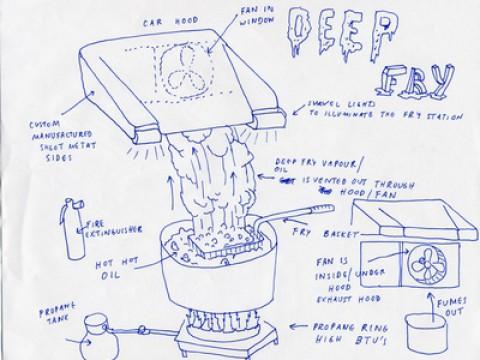 CAR HOOD
FAN IN
WINDOW
DEEP
FRY
CUSTOM
MANUFACTURED
SHEET METAL
SIDES
SWIVEL LIGHTS
TO ILLUMINATE THE FRY STATION
DEEP FRY VAPOUR/
OIL
IS VENTED OUT THROUGH
HOOD/FAN
FIRE
EXTINGUISHER
HOT HOT
OIL
FRY BASKET
FAN IS
INSIDE/UNDER
HOOD
EXHAUST HOOD
FUMES
OUT
PROPANE
TANK
PROPANE RING
HIGH BTU'S